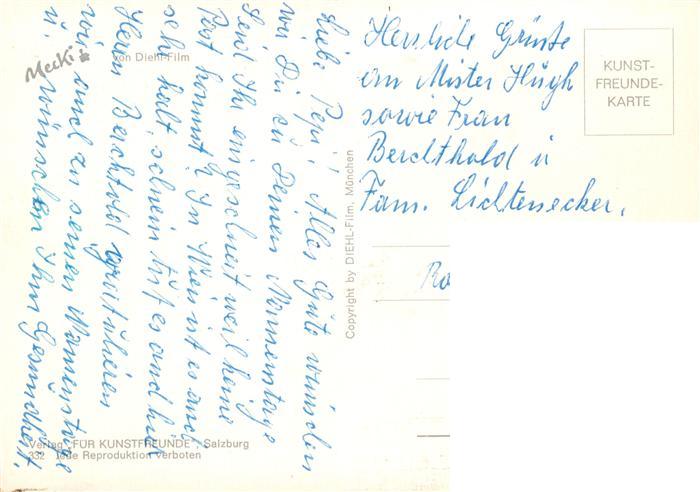 Liebe Pepi, Alles Gute wünschen
wir Dir zu Deinem Namenstage
Seid Ihr eingeschneit weil keine
Post kommt? In Wien ist es auch
seh kalt, schnein tut es auch hier
Herrn Berchtold gratulieren
wir auch zu seinem Namenstage
u. wünschen Ihm Gesundheit.
Mecki
von Diehl-Film
Verlag „FÜR KUNSTFREUNDE", Salzburg
332 Jede Reproduktion verboten
Copyright by DIEHL-Film, München
Herzliche Grüße
an Mister Hügh
sowie Frau
Berchthold u
Fam. Lichtenecker,
KUNST-
FREUNDE-
KARTE